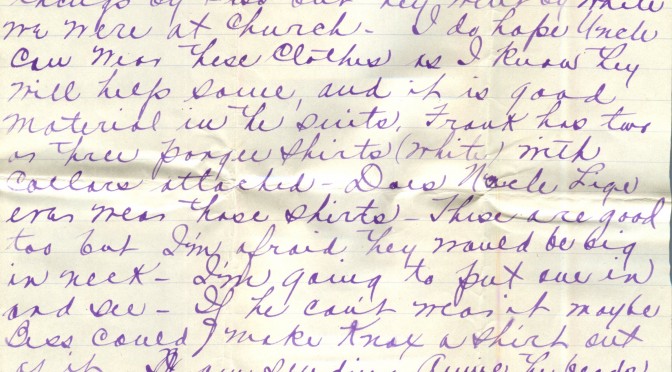 things by - so but they went by while
we were at church - I do hope Uncle
can wear these clothes as I know they
will help some, and it is good
material in the suits. Frank has two
or three pongee shirts (white) with
collars attached - Does Uncle Lige
ever wear those shirts - These are good
too but I'm afraid they would be big
in neck - I'm going to put one in
and see - If he can't wear it maybe
Bess could make Knox a shirt out
of it. I am sending